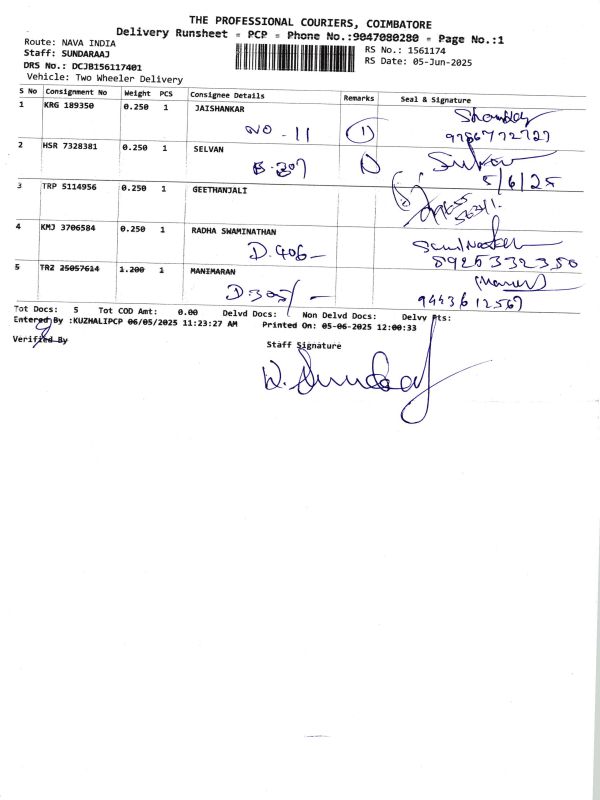 THE PROFESSIONAL COURIERS, COIMBATORE
Delivery Runsheet = PCP = Phone No.:9047080280 = Page No.:1
Route: NAVA INDIA
RS No.: 1561174
Staff: SUNDARAAJ
RS Date: 05-Jun-2025
DRS No.: DCJB156117401
Vehicle: Two Wheeler Delivery
S No Consignment No Weight PCS Consignee Details Remarks Seal & Signature
1 KRG 189350 0.250 1 JAISHANKAR
NO - 11 1 9786772727
2 HSR 7328381 0.250 1 SELVAN
B.307
5/6/25
3 TRP 5114956 0.250 1 GEETHANJALI
4 KMJ 3706584 0.250 1 RADHA SWAMINATHAN
D.406-
8925332350
5 TRZ 25057614 1.200 1 MANIMARAN
D.305 -
9443612567
Tot Docs: 5 Tot COD Amt: 0.00 Delvd Docs: Non Delvd Docs: Delvy Pts:
Entered By :KUZHALIPCP 06/05/2025 11:23:27 AM Printed On: 05-06-2025 12:00:33
Verified By
Staff Signature